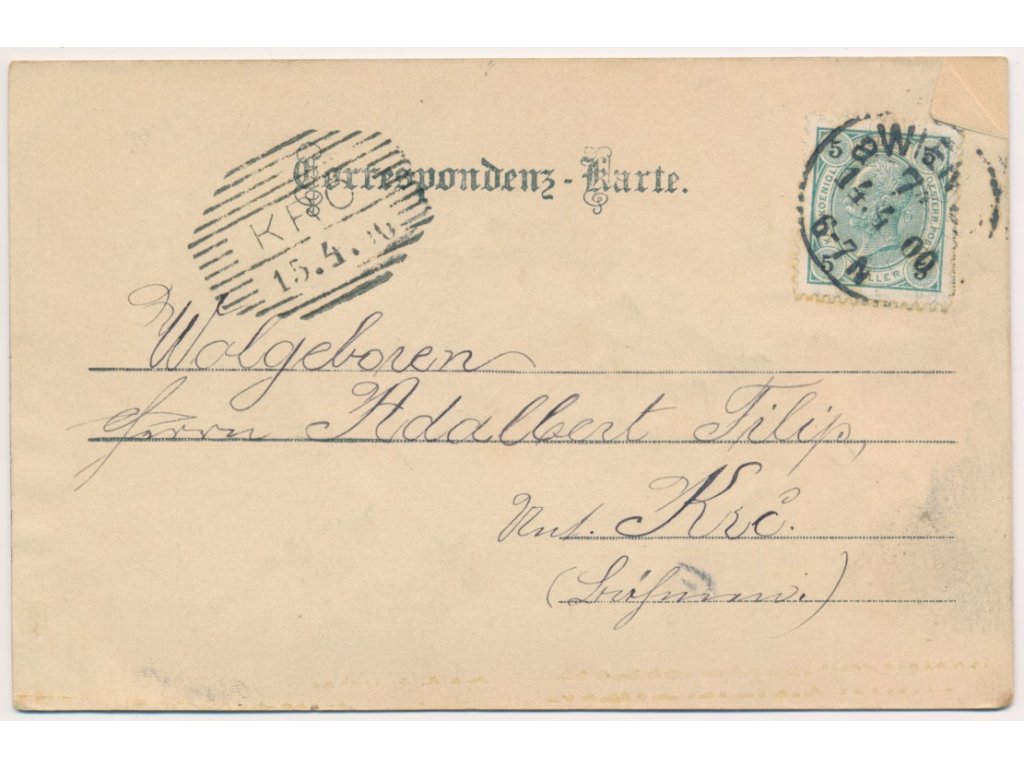 Correspondenz-Karte.
KRČ
15.4.
5 5
WIEN
7
14.4 00
6-7N
Wolgeboren
Herrn Adalbert Filip,
Unt. Krč.
(Böhmen.)